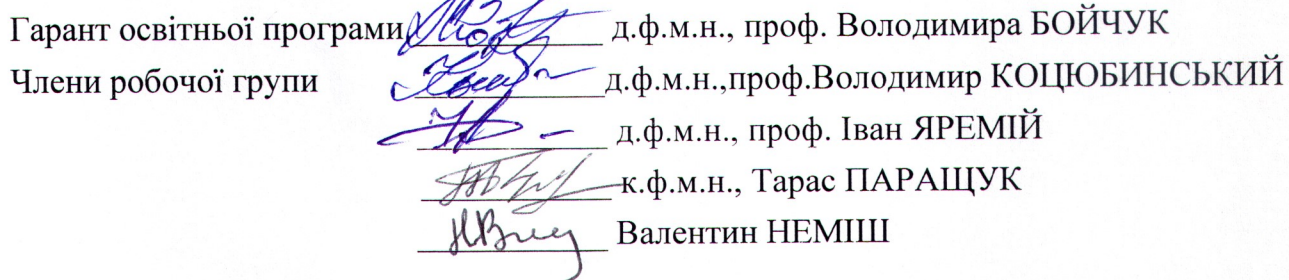 Гарант освітньої програми ____________ д.ф.м.н., проф. Володимира БОЙЧУК
Члени робочої групи ____________ д.ф.м.н.,проф.Володимир КОЦЮБИНСЬКИЙ
____________ д.ф.м.н., проф. Іван ЯРЕМІЙ
____________ к.ф.м.н., Тарас ПАРАЩУК
____________ Валентин НЕМІШ